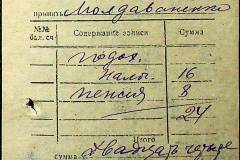 принять Молдаваненко
№№ бал. сч. Содержание записи Сумма
подох.
нало. 16
пенсия 8
24
Итого
сумма Двадцать четыре